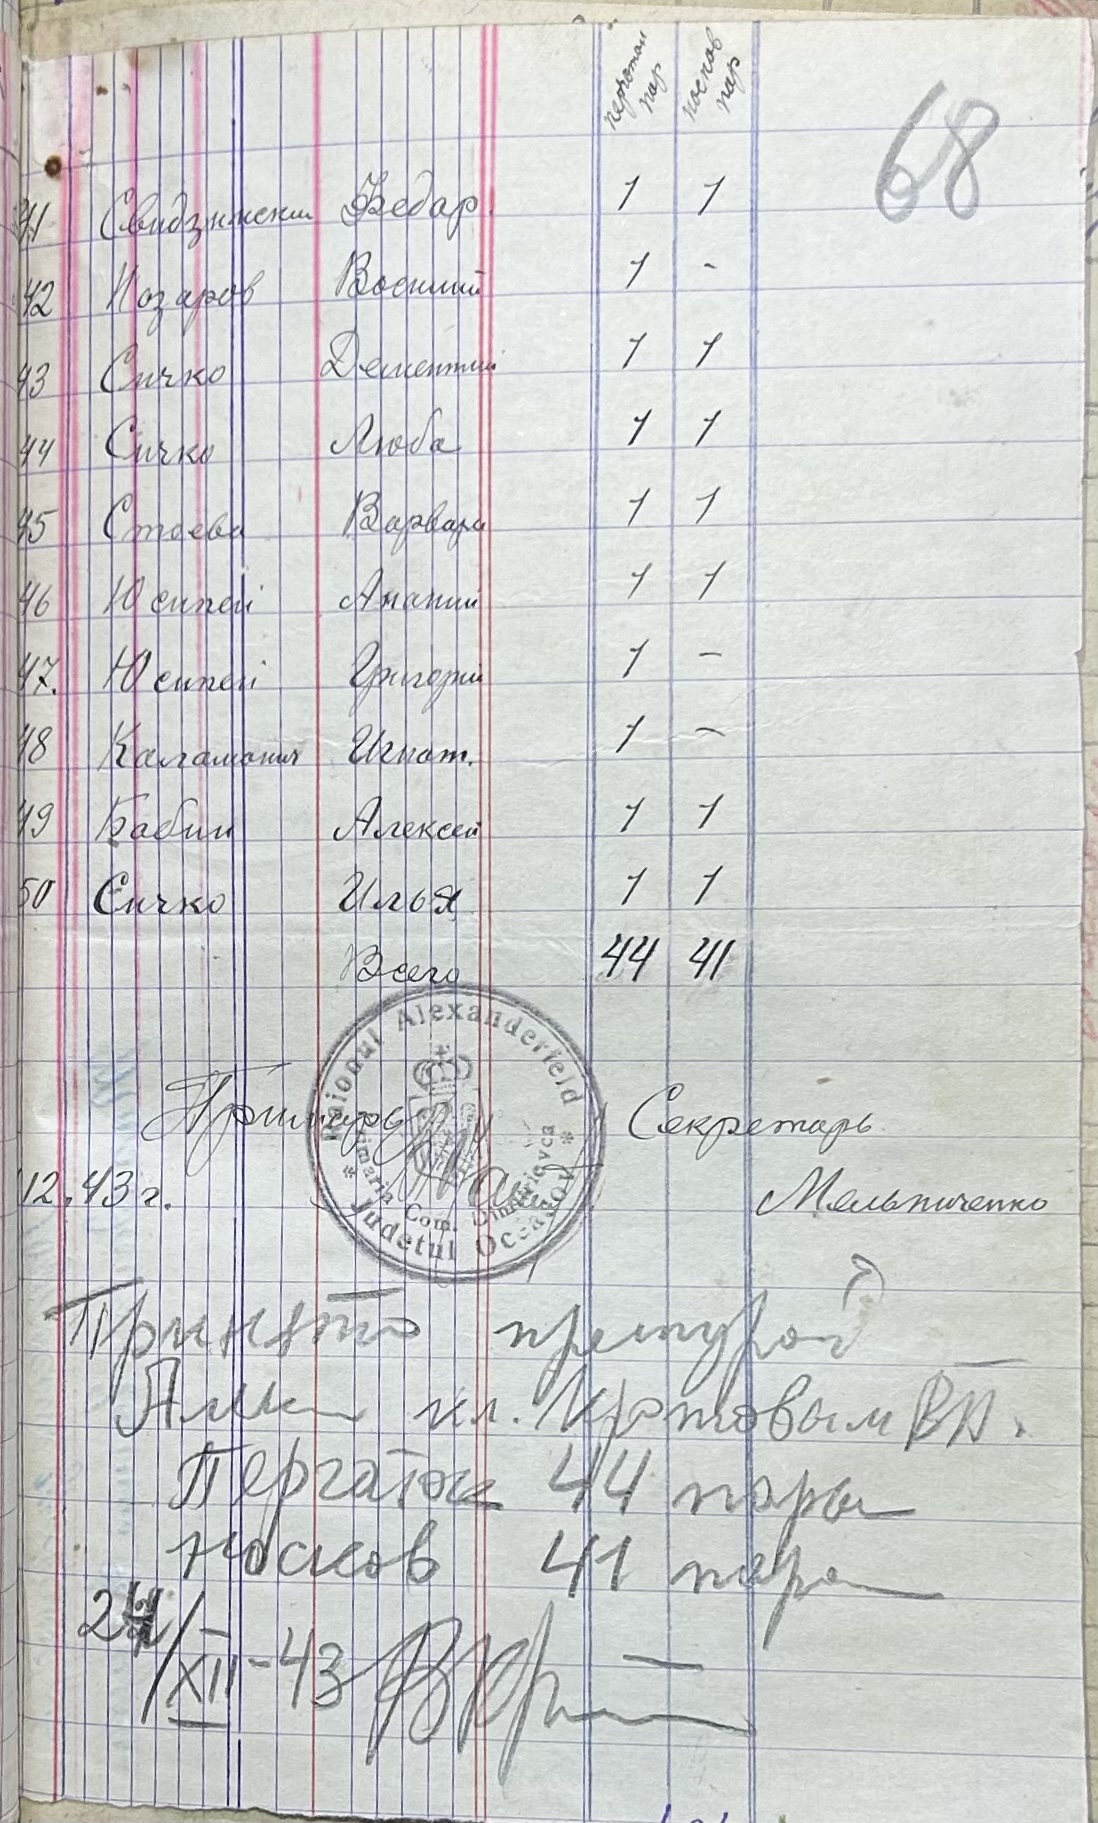 пар носков пар
68
41 Свидзински Федар. 1 1
42 Назаров Василий 1 -
43 Сичко Дементий 1 1
44 Сичко Люба 1 1
45 Стоева Варвара 1 1
46 Юсипей Ананий 1 1
47. Юсипей Григорий 1 -
48 Каламанич Игнат. 1 -
49 Бабин Алексей 1 1
50 Сичко Илья 1 1
Всего 44 41
Raionul Alexanderfeld
Primaria Com. Dimitrievca
Judetul Oceacov
Примарь Секретарь
12.43 г. Мельниченко
Принято претурой
кл. Кротовым ВП.
Пергаток 44 пары
носков 41 пара
XII-43